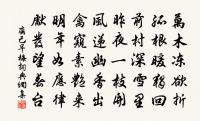 萬木冻欲折
孤根暖獨回
前村深雪裏
昨夜一枝開
風遞幽香出
禽窺素艷來
明年如應律
獻發望春台
齊己早梅詞典網書